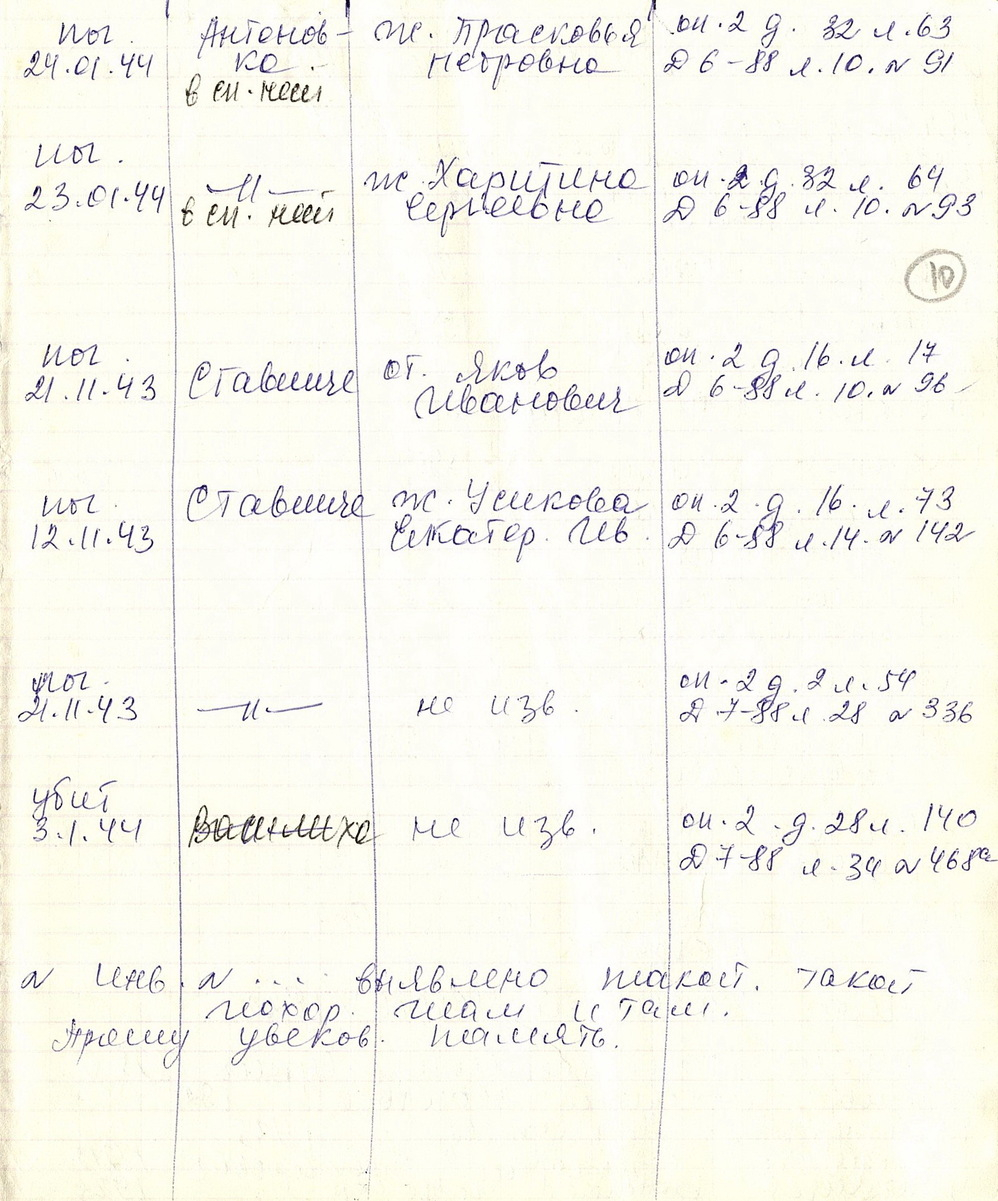 пог. Антонов- ж. Прасковья оп. 2 д. 32 л. 63
24.01.44 ка. Петровна Д 6-88 л. 10. N 91
в сп. нет
пог.
23.01.44 —"— ж. Харитина оп. 2 д. 32 л. 64
в сп. нет Сергеевна Д 6-88 л. 10. N 93
10
пог. Ставище от. Яков оп. 2 д. 16. л. 17
21.11.43 Иванович Д 6-88 л. 10. N 96
пог. Ставище ж. Усикова оп. 2 д. 16. л. 73
12.11.43 Екатер. Ив. Д 6-88 л. 14. N 142
пог. оп. 2 д. 2 л. 54
21.11.43 —"— не изв. Д 7-88 л. 28 N 336
убит
3.1.44 не изв. оп. 2 д. 28 л. 140
Д 7-88 л. 34 N 468а
N инв. N ... выявлено такой. такой
похор. там и там.
Прошу увеков. память.